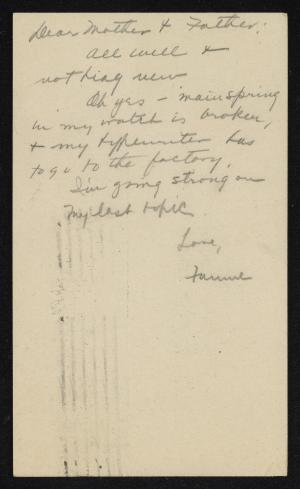 Dear Mother & Father:
All well &
nothing new
Oh yes - mainspring
in my watch is broken,
& my typewriter has
to go to the factory.
I'm going strong on
my last topic
Love,
Fannie